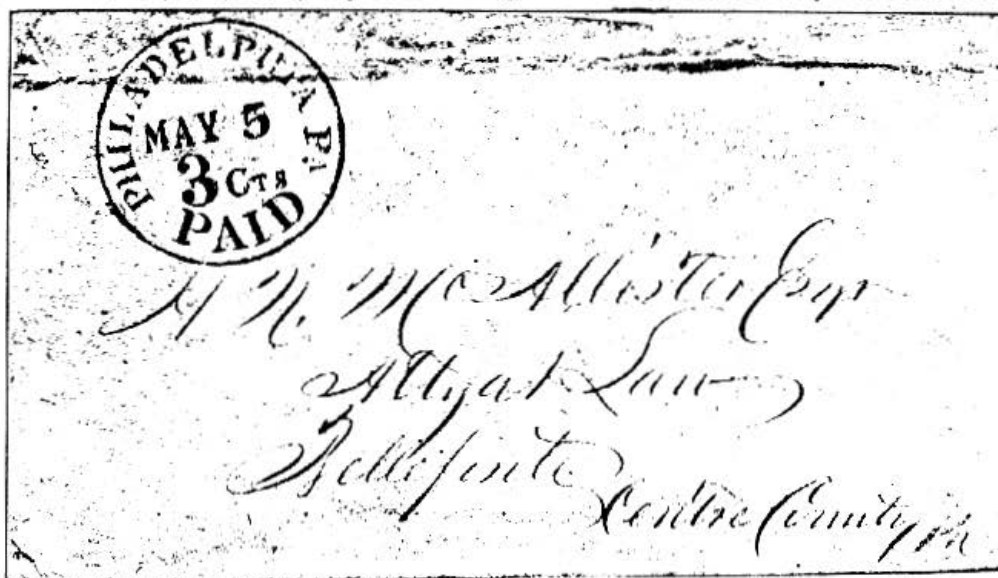 PHILADELPHIA PA
MAY 5
3 CTS
PAID
H. N. McAllister Esqr
Atty at Law
Bellefonte
Centre County, Pa